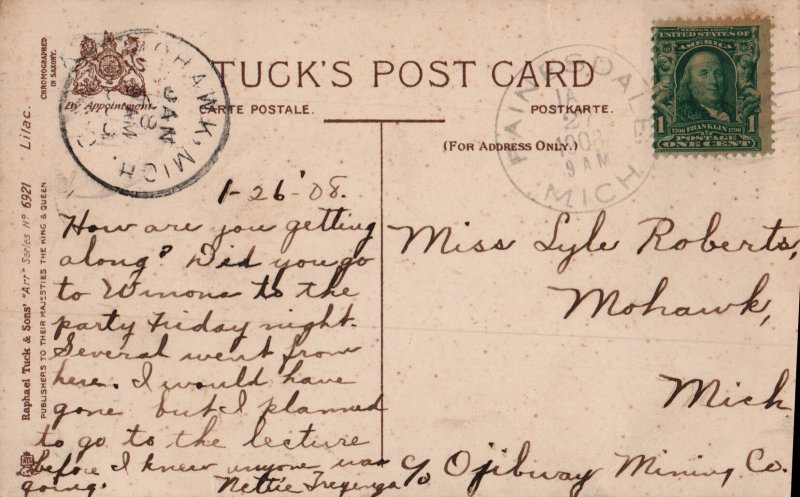 TUCK'S POST CARD
CARTE POSTALE.
POSTKARTE.
(FOR ADDRESS ONLY.)
By Appointment.
CHROMOGRAPHED
IN SAXONY.
Raphael Tuck & Sons' "Art" Series Nº 6921 Lilac.
PUBLISHERS TO THEIR MAJESTIES THE KING & QUEEN.
MOHAWK, MICH.
JAN
AM
PAINESDALE
JA
1908
9 AM
MICH
UNITED STATES OF
AMERICA
1706 FRANKLIN 1790
1 1
POSTAGE
ONE CENT
1-26'08.
How are you getting
along? Did you go
to Winona to the
party Friday night.
Several went from
here. I would have
gone but I planned
to go to the lecture
before I knew anyone was
going. Nettie Tregenga
Miss Lyle Roberts,
Mohawk,
Mich
c/o Ojibway Mining Co.